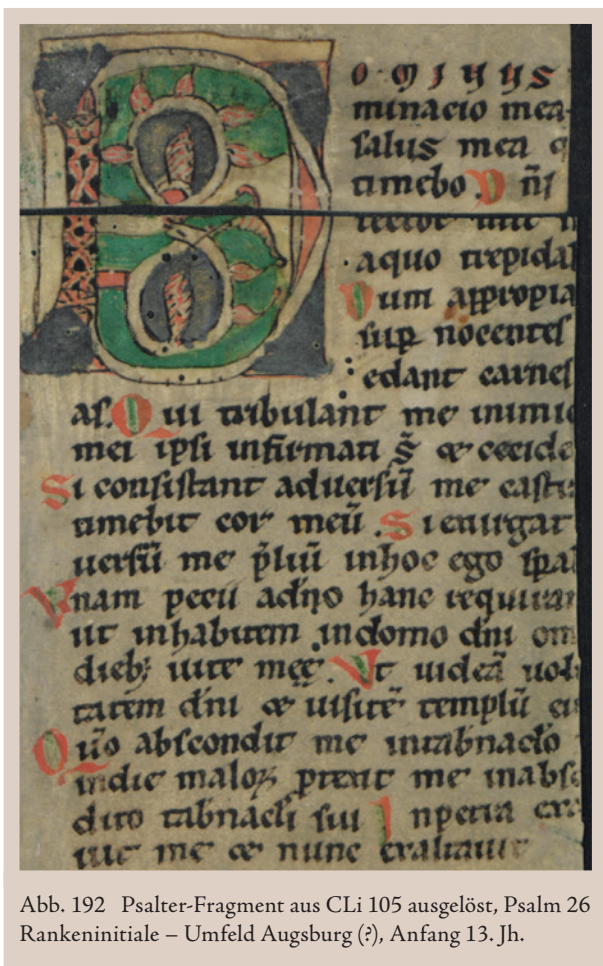 D O M I N U S
minacio mea
salus mea q
timebo D n̄s
tector uite m
aquo trepidab
Dum appropia
sup nocentes
edant carnes
as. Qui tribulant me inimic
mei ipsi infirmati s̄ & cecide
Si consistant aduersū me castr
timebit cor meū. Si exurgat
uersū me p̄liū inhoc ego spab
Vnam pecii adn̄o hanc requiram
ut inhabitem indomo dn̄i om
dieb; uite męę. Vt uideā uolu
tatem dn̄i & uisitē templū ei
Qn̄o abscondit me intabn̄aclo
indie maloꝝ ptexit me inabsc
dito tabn̄acli sui In petra exa
uit me & nunc exaltauit
Abb. 192 Psalter-Fragment aus CLi 105 ausgelöst, Psalm 26
Rankeninitiale – Umfeld Augsburg (?), Anfang 13. Jh.